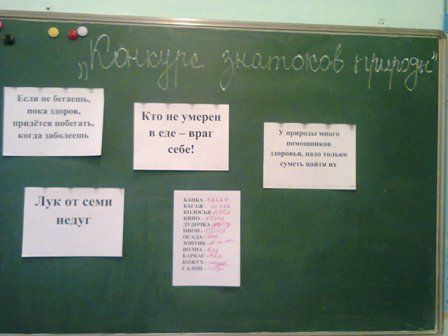 „Конкурс знатоков природы"
Если не бегаешь,
пока здоров,
придётся побегать,
когда заболеешь
Кто не умерен
в еде – враг
себе!
У природы много
помощников
здоровья, надо только
суметь найти их
Лук от семи
недуг
БАНКА - КАБАН
БАГАЖ -
КОЛОСЬЯ -
КИНО -
ДУДОЧКА -
ПИОН -
ОСАДА -
ЗОНТИК -
ВОЛНА -
КАРКАС -
КОЖУХ -
САЛОН -